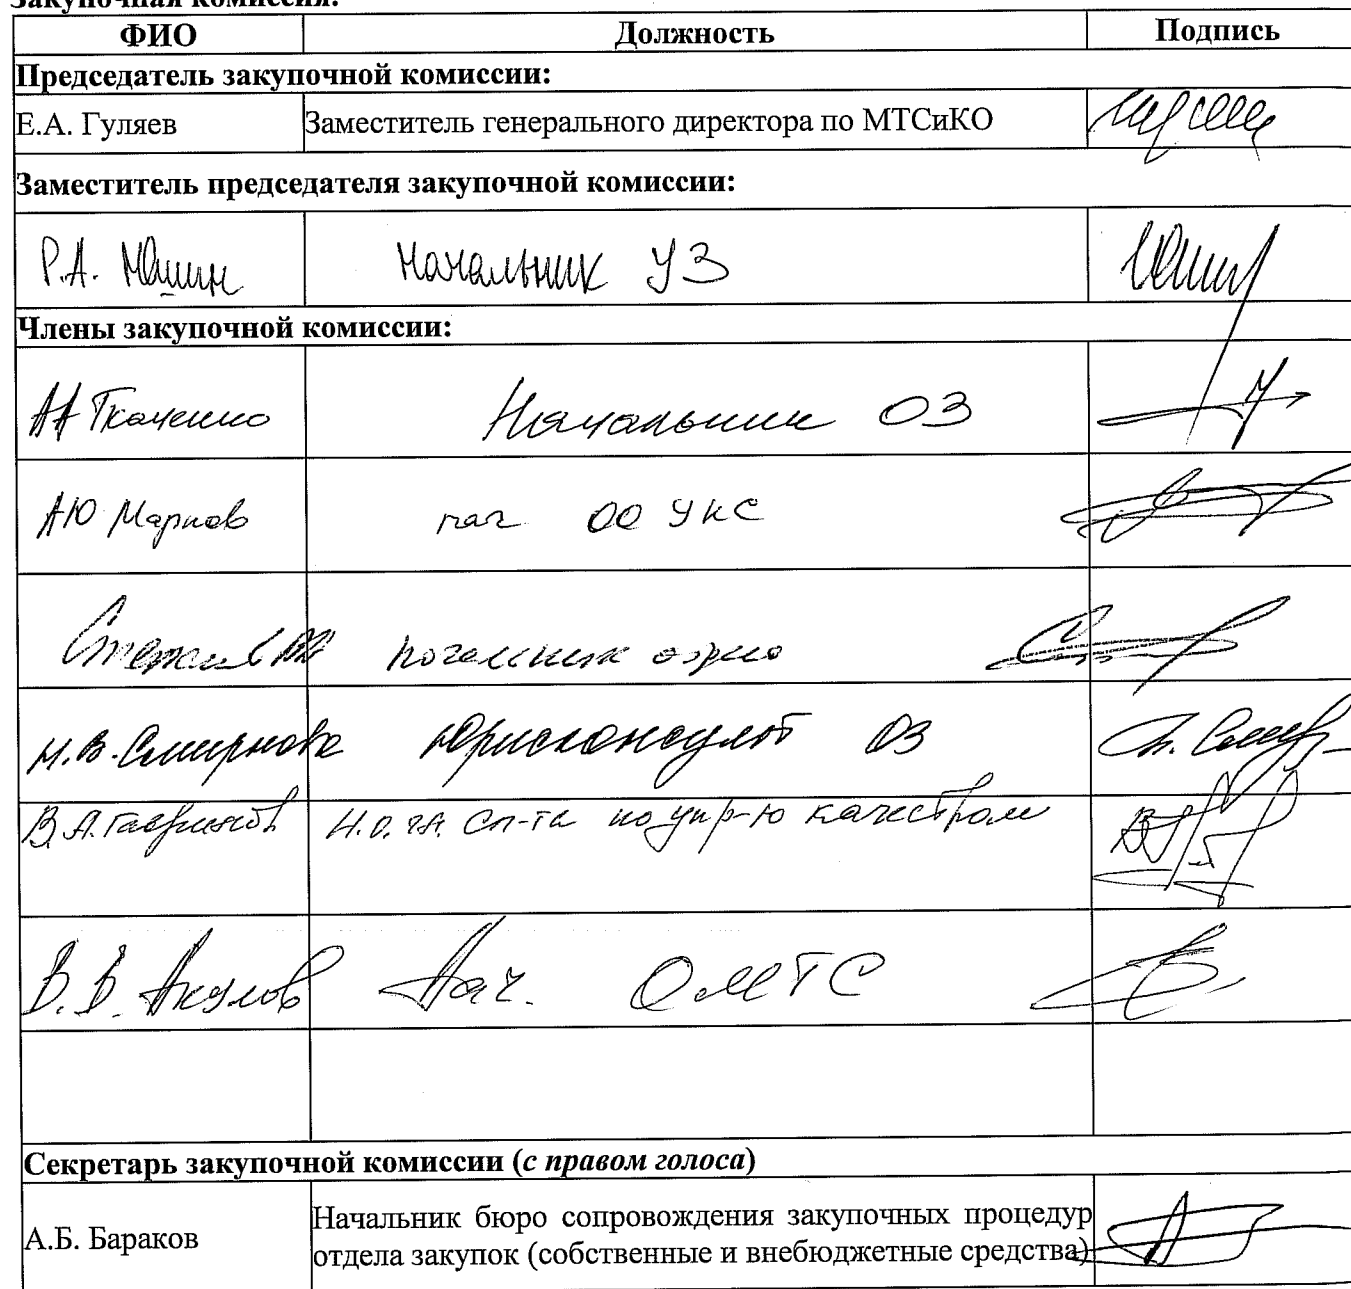 Закупочная комиссия:
ФИО Должность Подпись
Председатель закупочной комиссии:
Е.А. Гуляев Заместитель генерального директора по МТСиКО
Заместитель председателя закупочной комиссии:
Р.А. Юшин Начальник УЗ
Члены закупочной комиссии:
АА Ткаченко Начальник ОЗ
АЮ Марков нач ОО УКС
начальник
Н.В. Смирнова Юрисконсульт ОЗ
В.А. И.о. гл. сп-та по упр-ю качеством
В.В. Акулов Нач. ОМТС
Секретарь закупочной комиссии (с правом голоса)
А.Б. Бараков Начальник бюро сопровождения закупочных процедур
отдела закупок (собственные и внебюджетные средства)